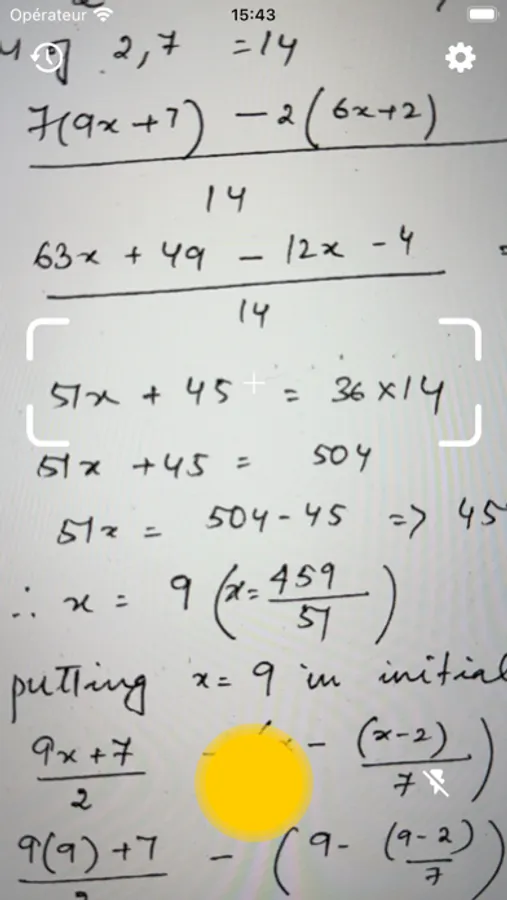 Opérateur 15:43
2,7 = 14
7(9x+7) - 2(6x+2)
14
63x + 49 - 12x - 4 =
14
51x + 45 = 36 x 14
51x + 45 = 504
51x = 504 - 45 => 45
∴ x = 9 (x = 459/51)
putting x = 9 in initial
9x+7 / 2 - x - (x-2) / 7 )
9(9)+7 - (9 - (9-2) / 7 )